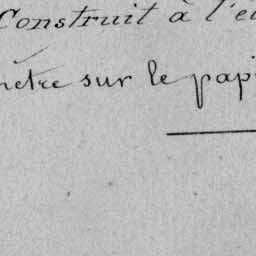 Construit à l'é
mètre sur le papi